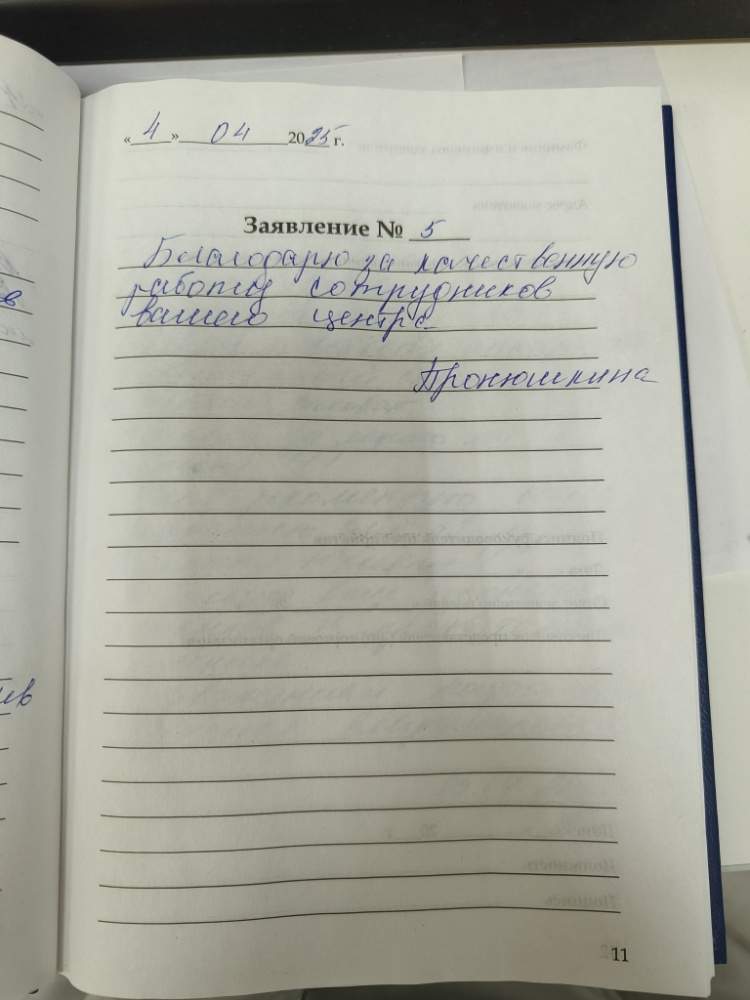 «4» 04 2025 г.
Заявление № 5
Благодарю за качественную
работу сотрудников
вашего центра
Пронюшкина
11